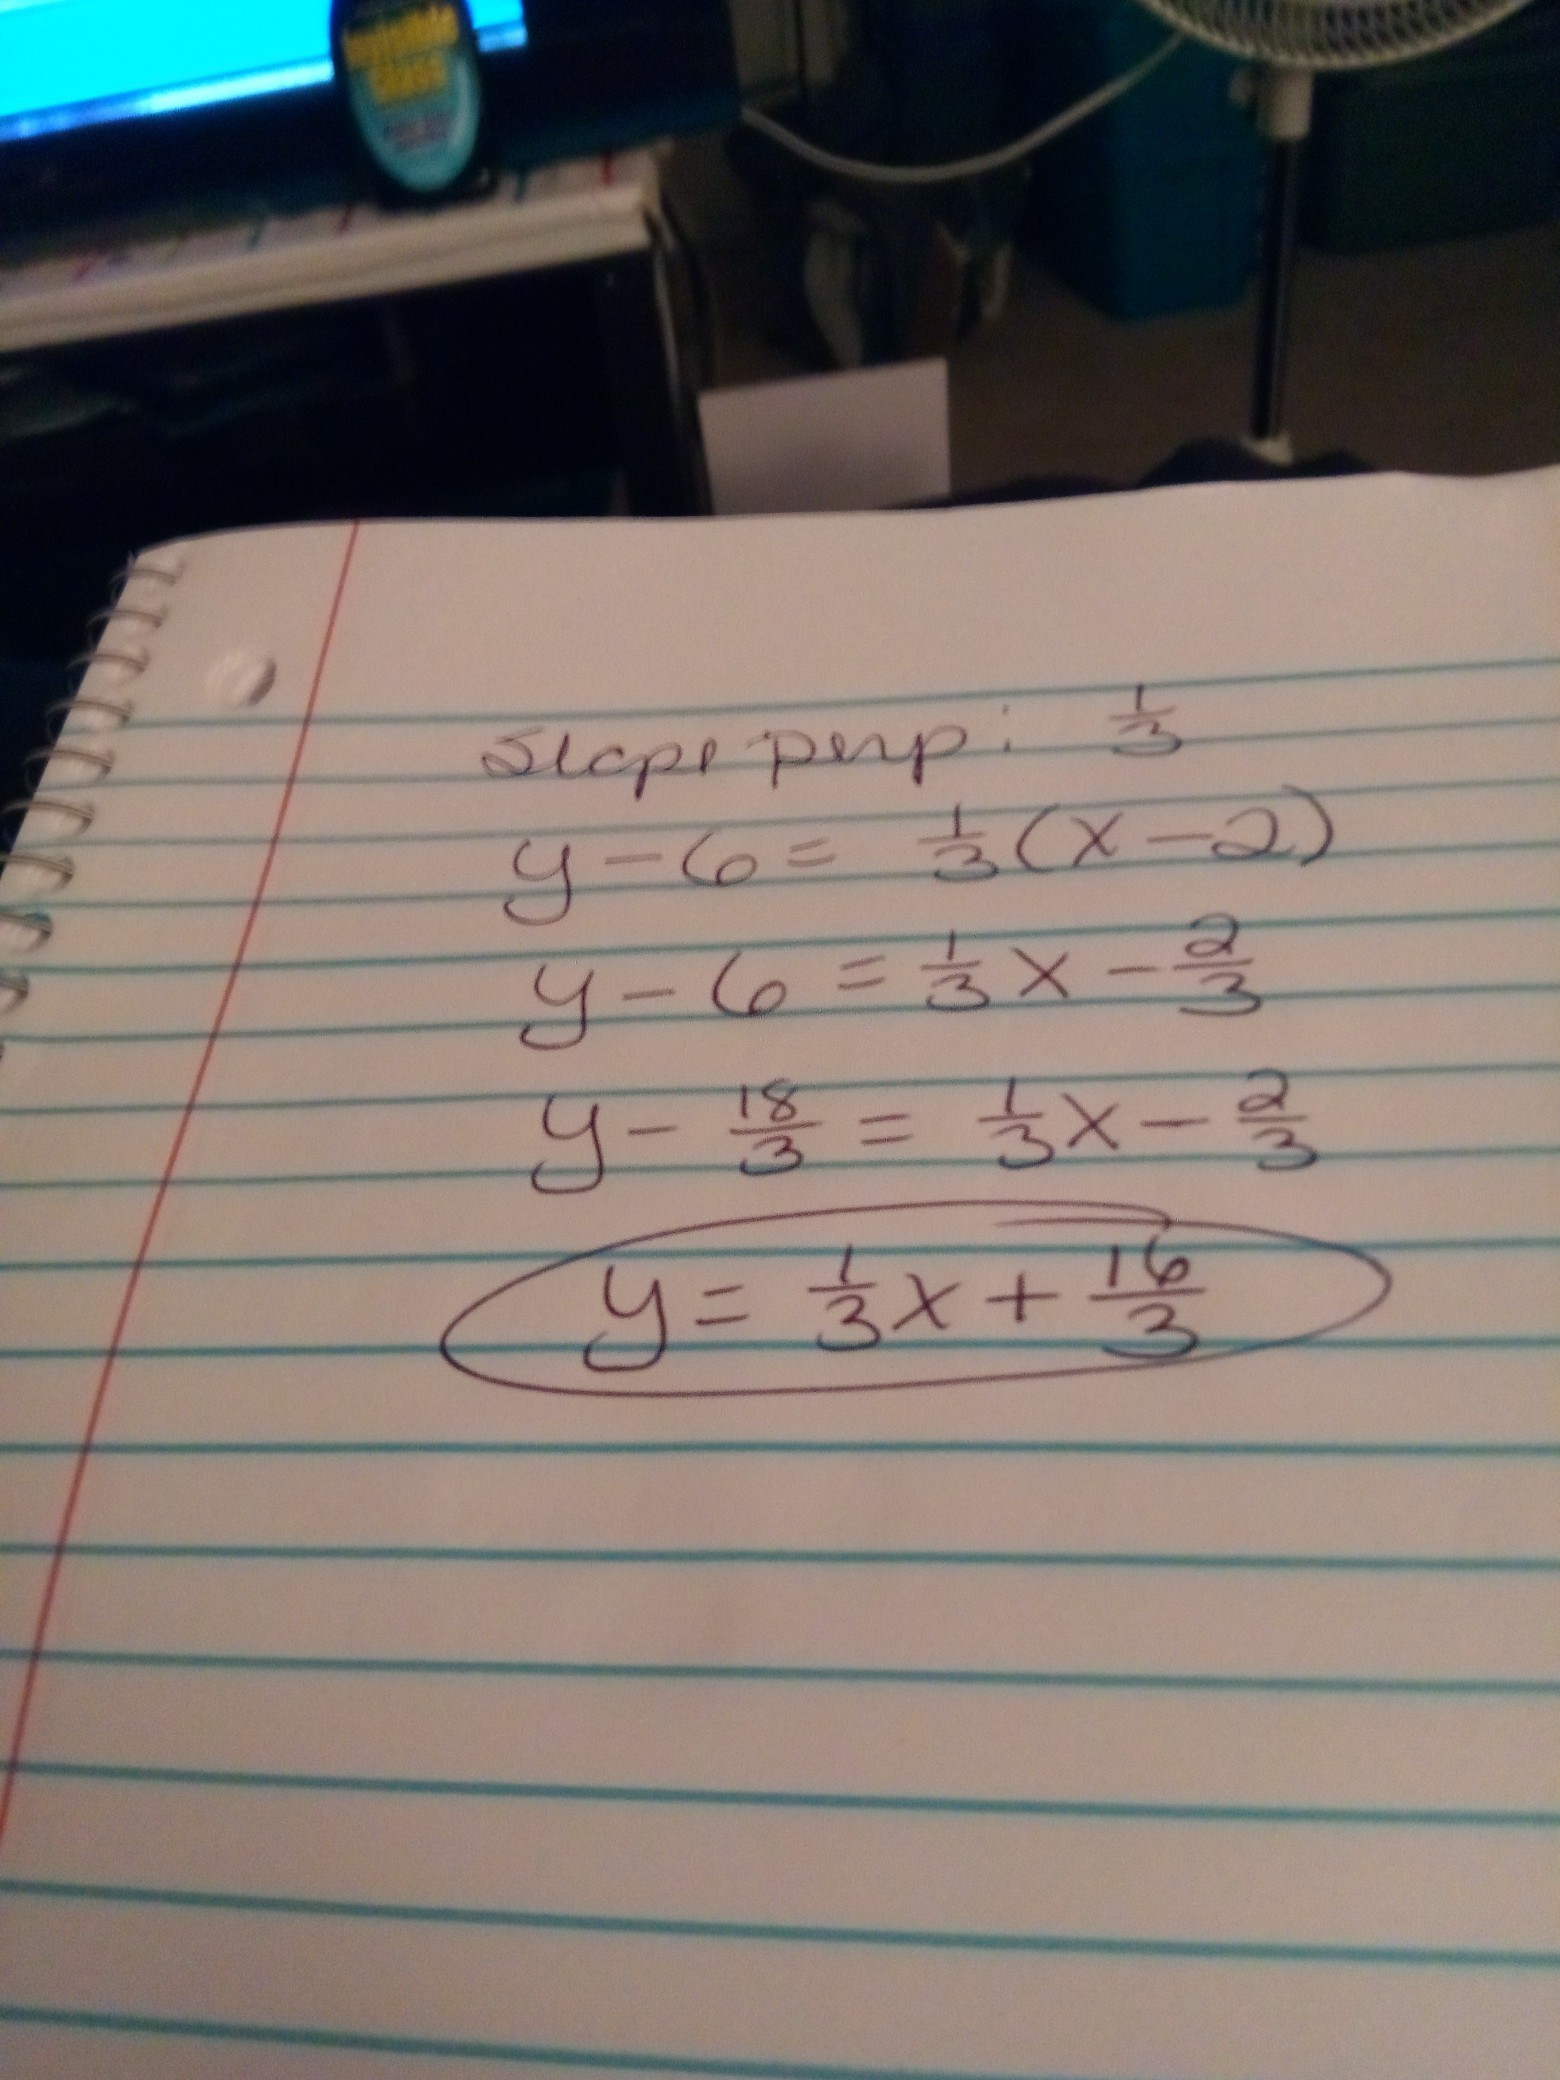 Slope perp: 1/3
y - 6 = 1/3 (x - 2)
y - 6 = 1/3 x - 2/3
y - 18/3 = 1/3 x - 2/3
y = 1/3 x + 16/3